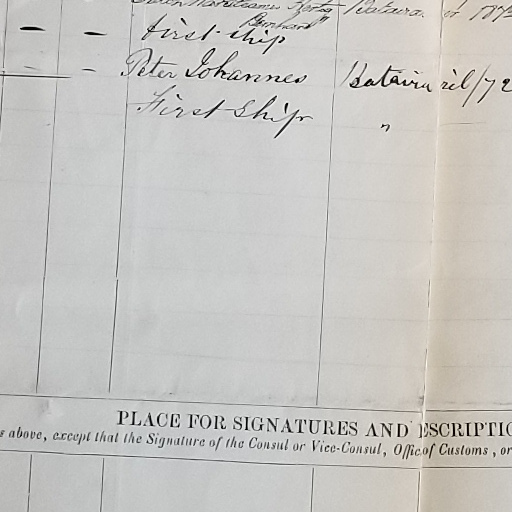 Bernhard"
— — First ship
— — Peter Johannes Batavia /72
First Ship "
PLACE FOR SIGNATURES AND ESCRIPTIO
s above, except that the Signature of the Consul or Vice-Consul, Offic of Customs, or